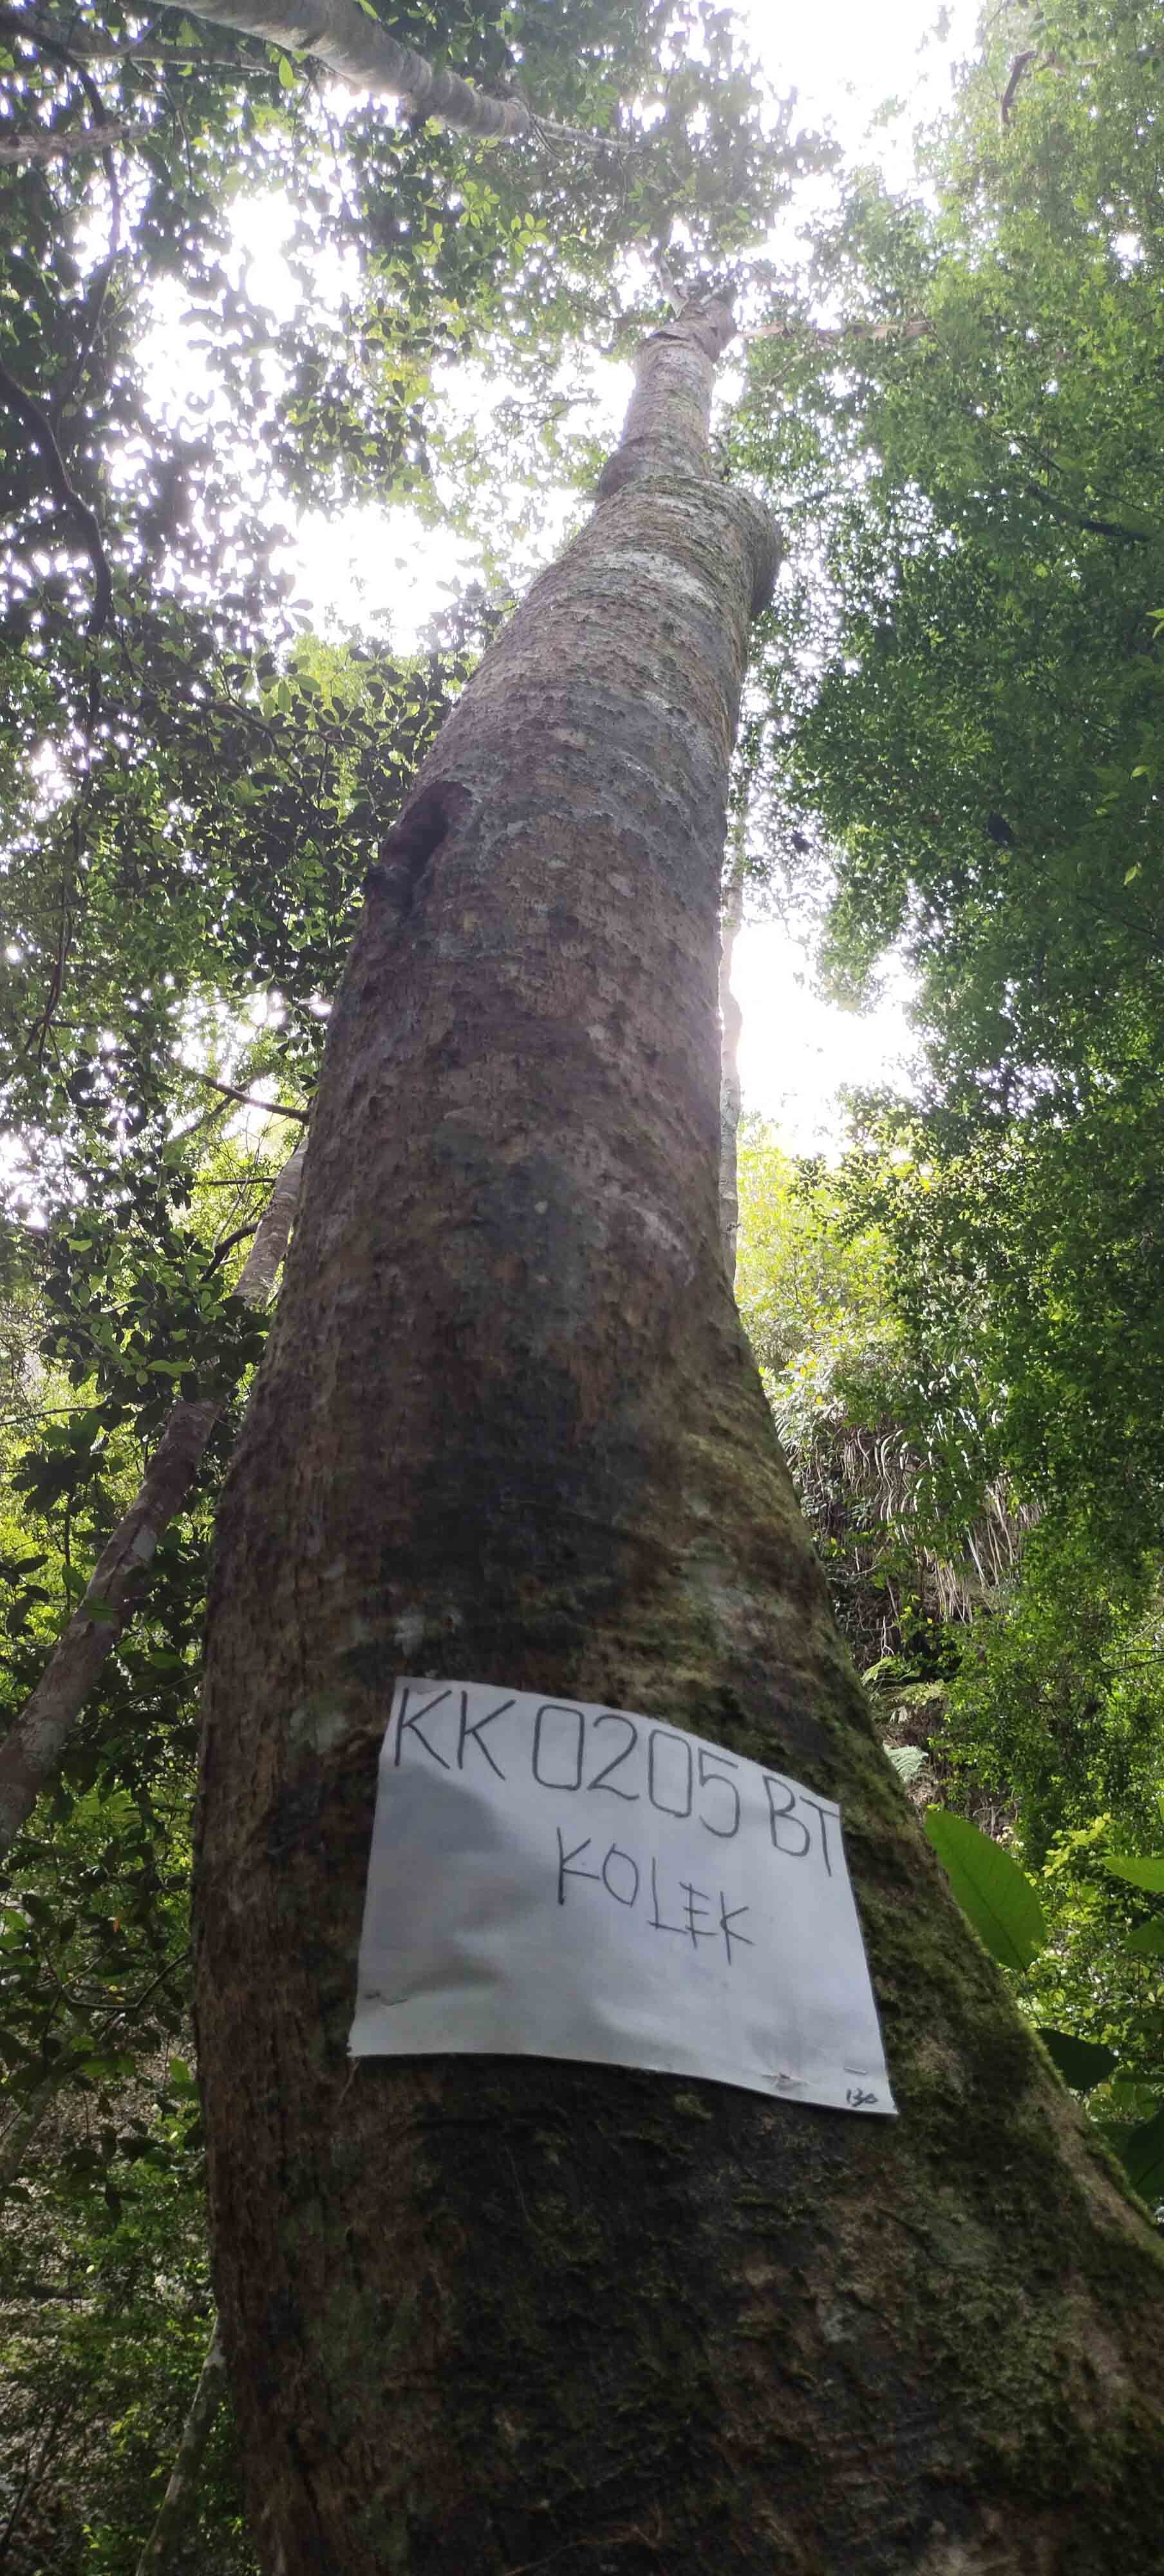 KK 0205 BT
KOLEK
130